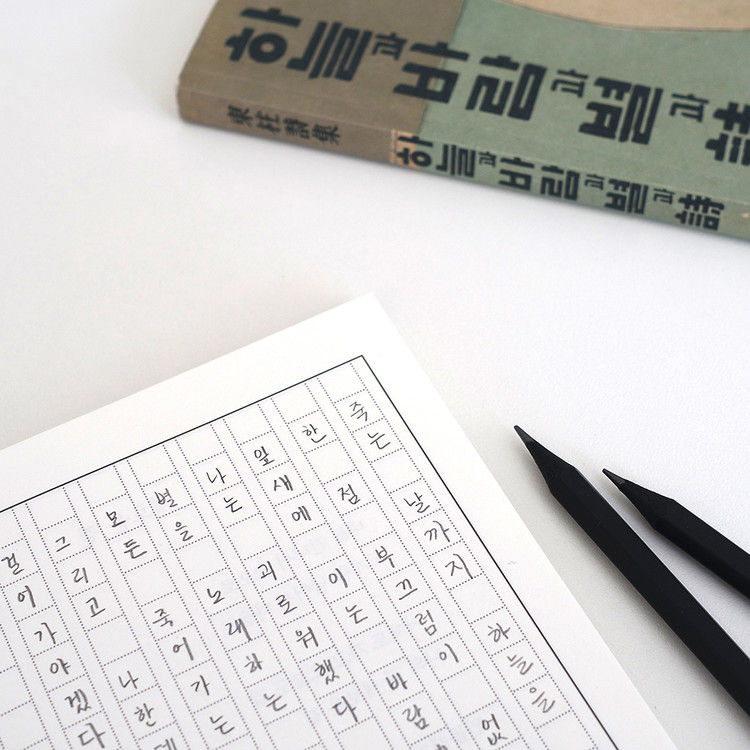 하늘과 바람과 별과 詩
東柱詩集 하늘과 바람과 별과 詩
죽는 날까지 하늘을
한 점 부끄럼이 없
잎새에 이는 바람
나는 괴로워했다
별을 노래하는
모든 죽어가는
그리고 나한
걸어가야겠다